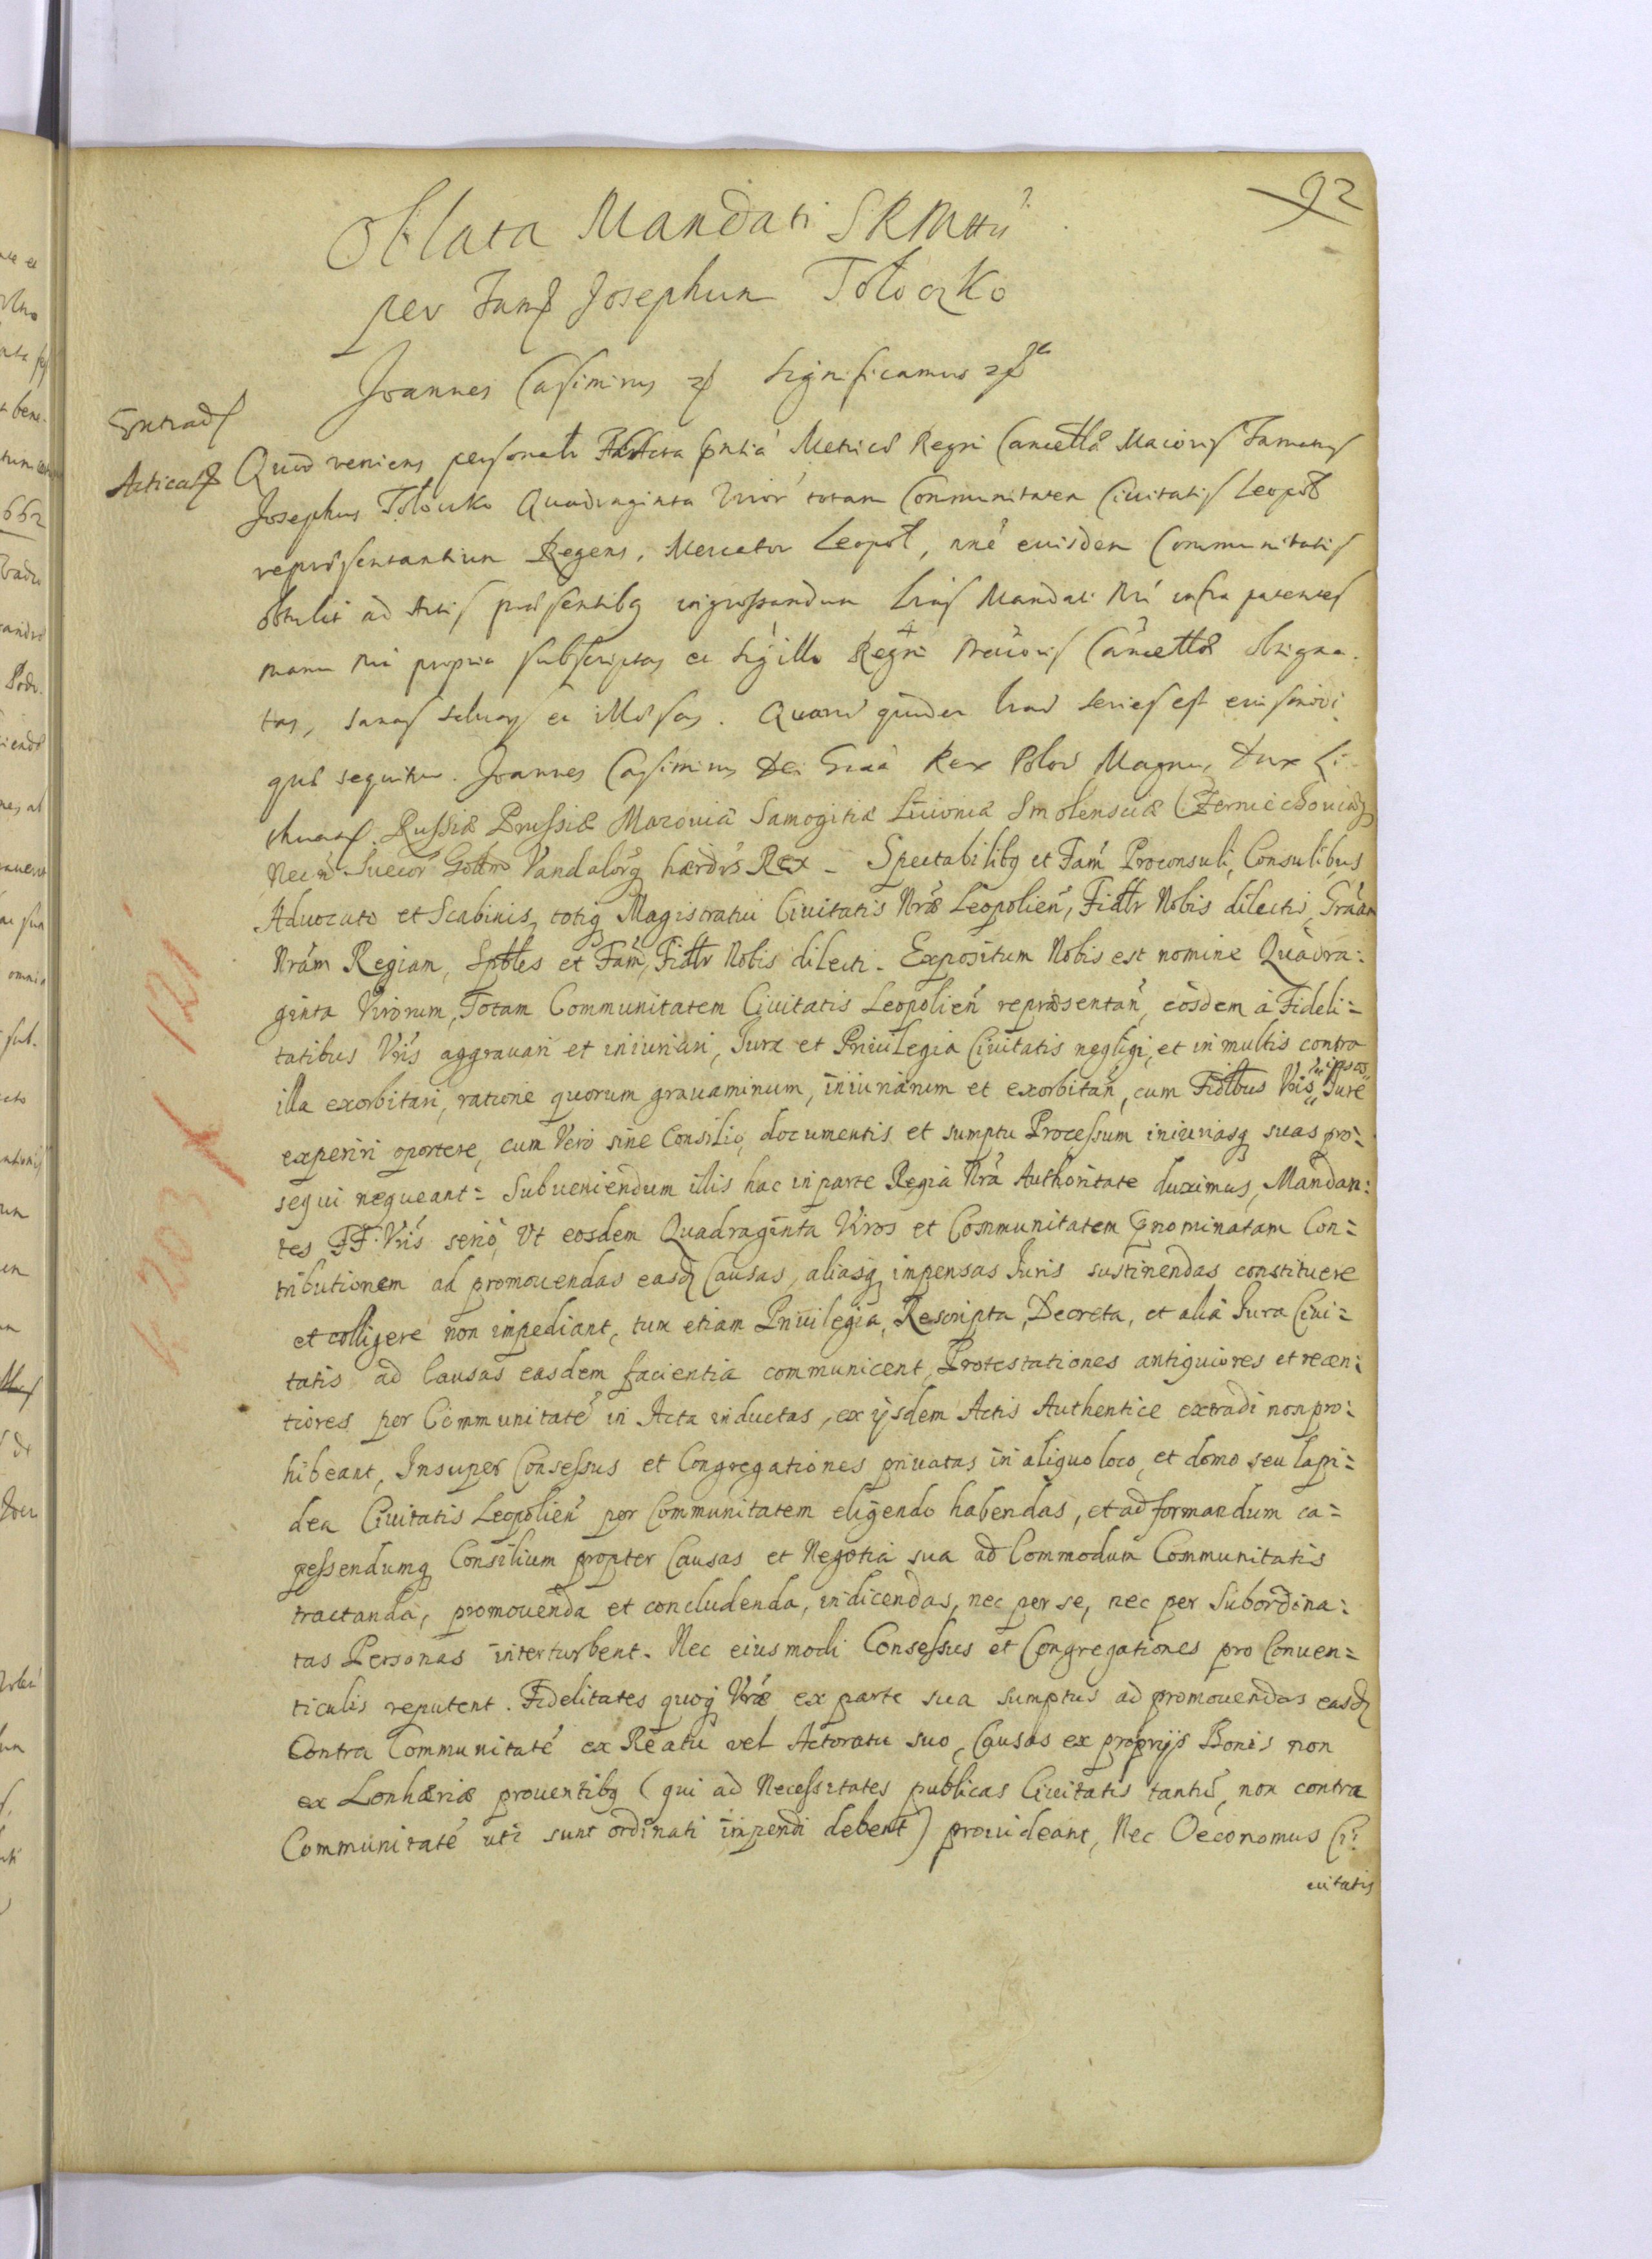 92
Oblata Mandati SRMttis
per Fam Josephum Toloczko
Joannes Casimirus Significamus
Extrad
Acticat
Quod veniens personalr ad Acta pntia Metrices Regni Cancellæ Maioris Famatus
Josephus Toloczko Quadraginta Viror totam Communitatem Ciuitatis Leopol
repræsentantium Regens, Mercator Leopol, nne euisdem Communitatis
obtulit ad Actis præsentibq ingrossandum Lras Mandati Nri infra patentes
manu Nra propria subscriptas et Sigillo Regni Maioris Cancellæ obsigna-
tas, sanas saluas et illæsas. Quarum quidem Lrarum series est eiusmodi
quæ sequitur. Joannes Casimirus Dei Graa Rex Polon Magnus Dux Li-
thuan Russiæ Prussiæ Mazouiæ Samogitiæ Liuoniæ Smolensciæ Czerniechouiæq
Necn Suecor Gottor Vandalorq hærdrs Rex - Spectabilibq et Fam Proconsuli, Consulibus
Aduocato et Scabinis, totiq Magistratui Ciuitatis Nræ Leopolien, Fidlr Nobis dilectis, Gram
Nram Regiam, Sptbles et Fam, Fidlr Nobis dilecti. Expositum Nobis est nomine Quadra:
ginta Virorum, Totam Communitatem Ciuitatis Leopolien repræsentan, eosdem à Fideli=
tatibus Vris aggrauari et iniuriari, Jura et Priuilegia Ciuitatis negligi, et in multis contra
illa exorbitari, ratione quorum grauaminum, iniuriarum et exorbitan, cum Fidltbus Vris "ipsos" Jure
experiri oportere, cum Vero sine Consilio, documentis et sumptu Processum iniuriasq suas pro=
sequi nequeant= Subueniendum illis hac in parte Regia Nra Authoritate duximus, Mandan:
tes FF. Vris serio, Vt eosdem Quadraginta Viros et Communitatem pnominatam Con=
tributionem ad promouendas easd Causas, aliasq impensas Juris sustinendas constituere
et colligere non impediant, tum etiam Priuilegia, Rescripta, Decreta, et alia Jura Ciui=
tatis ad Causas easdem facientia communicent, Protestationes antiquiores et recen:
tiores per Communitate in Acta inductas, ex ijsdem Actis Authentice extradi non pro:
hibeant, Insuper Consessus et Congregationes priuatas in aliquo loco, et domo seu lapi=
dea Ciuitatis Leopolien per Communitatem eligendo habendas, et ad formandum ca=
pessendumq Consilium propter Causas et Negotia sua ad Commodum Communitatis
tractanda, promouenda et concludenda, indicendas, nec per se, nec per Subordina:
tas Personas interturbent. Nec eiusmodi Consessus et Congregationes pro Conuen=
ticulis reputent. Fidelitates quoq Vræ ex parte sua sumptus ad promouendas easd
Contra Communitate ex Reatu vel Actoratu suo, Causas ex proprijs Bonis non
ex Lonhæriæ prouentibq (qui ad Necessitates publicas Ciuitatis tantu, non contra
Communitate uti sunt ordinati impendi debent) prouideant, Nec Oeconomus Ci:
uitatis